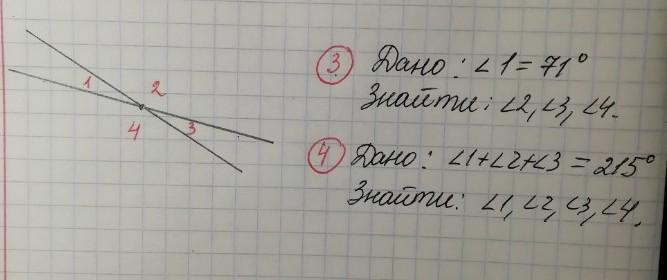 1
2
4
3
3 Дано: ∠1 = 71°
Знайти: ∠2, ∠3, ∠4.
4 Дано: ∠1+∠2+∠3 = 215°
Знайти: ∠1, ∠2, ∠3, ∠4.